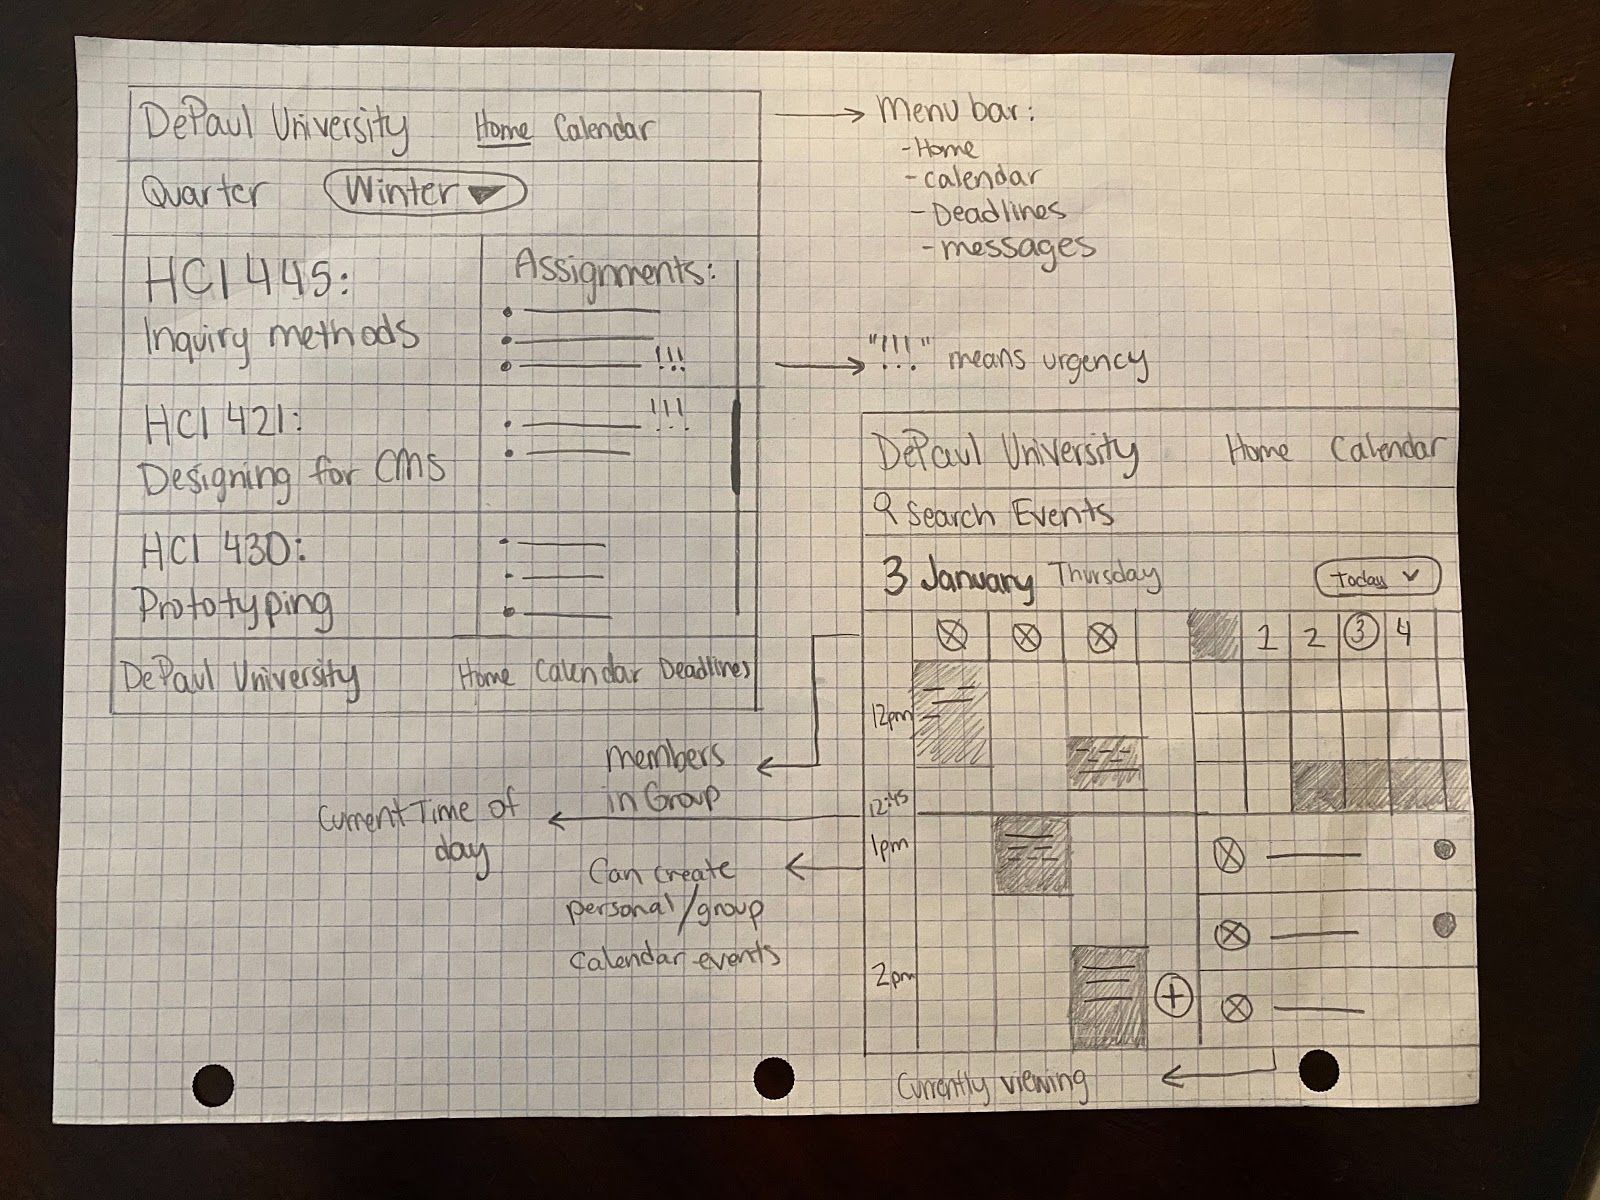 DePaul University Home Calendar
Quarter Winter
HCI 445:
Inquiry methods
Assignments:
!!!
HCI 421:
Designing for CMS
!!!
HCI 430:
Prototyping
DePaul University Home Calendar Deadlines
Menu bar:
- Home
- calendar
- Deadlines
- messages
"!!!" means urgency
DePaul University Home Calendar
Search Events
3 January Thursday Today
1 2 3 4
12pm
12:45
1pm
2pm
members
in Group
Current Time of
day
Can create
personal/group
calendar events
Currently viewing